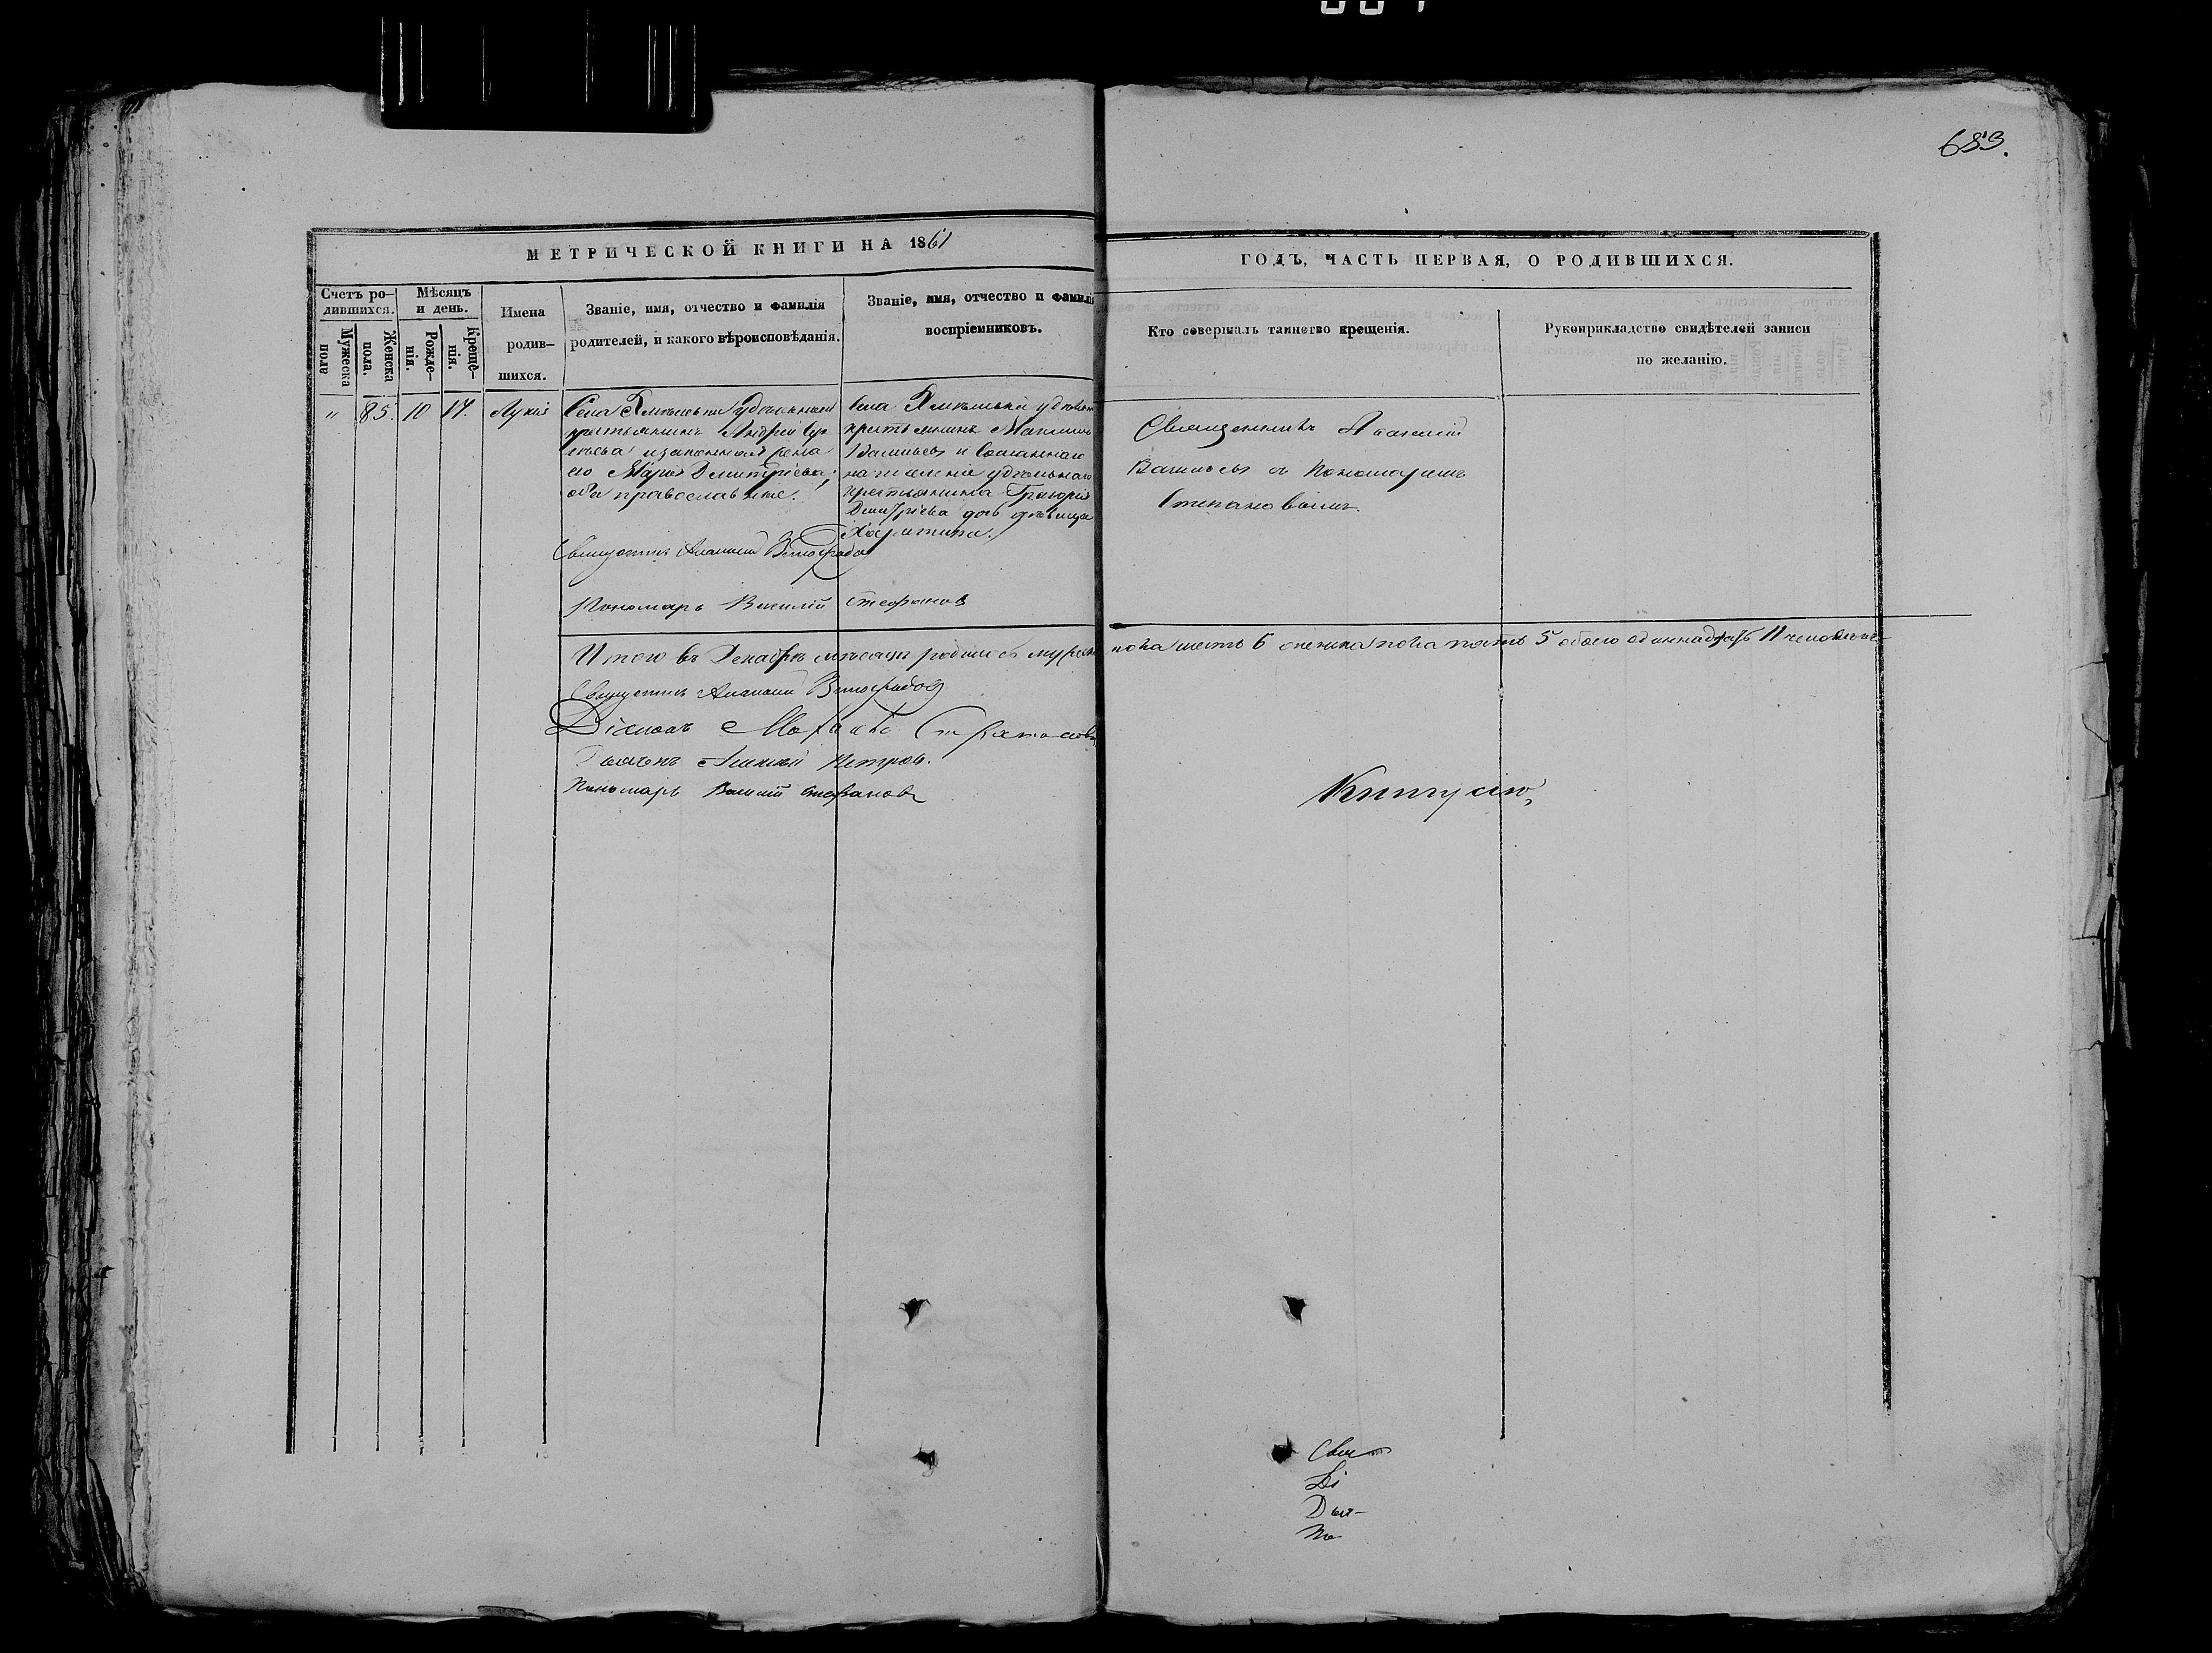 683.
МЕТРИЧЕСКОЙ КНИГИ НА 1861
ГОДЪ, ЧАСТЬ ПЕРВАЯ, О РОДИВШИХСЯ.
Счетъ ро-
дившихся.
Мужеска
пола
Женска
пола.
Мѣсяцъ
и день.
Рожде-
нія.
Креще-
нія.
Имена
родив-
шихся.
Званіе, имя, отчество и фамилія
родителей, и какого вѣроисповѣданія.
Званіе, имя, отчество и фамилія
воспріемниковъ.
Кто совершалъ таинство крещенія.
Рукоприкладство свидѣтелей записи
по желанію.
" 85. 10 17. Лукія
Села удѣльный
крестьянинъ Андрей
и законная жена
его Марья Димитріева;
оба православные.
Села
крестьянинъ Максимъ
Васильевъ и
удѣльнаго
крестьянина Григорія
Димитріева дочь дѣвица
Харитина.
Священникъ Аѳанасій
Васильевъ съ Пономаремъ
Степановымъ.
Священникъ Виноградовъ
Пономарь Василій Стефановъ
Итого въ Декабрѣ мѣсяцѣ родилось мужеска пола шесть 6 женска пола пять 5 обоего одиннадцать 11 человѣкъ
Священникъ Виноградовъ
Діаконъ
Дьячекъ Алексѣй Петровъ.
Пономарь Василій Стефановъ
Свя
Ді
Дья-
По